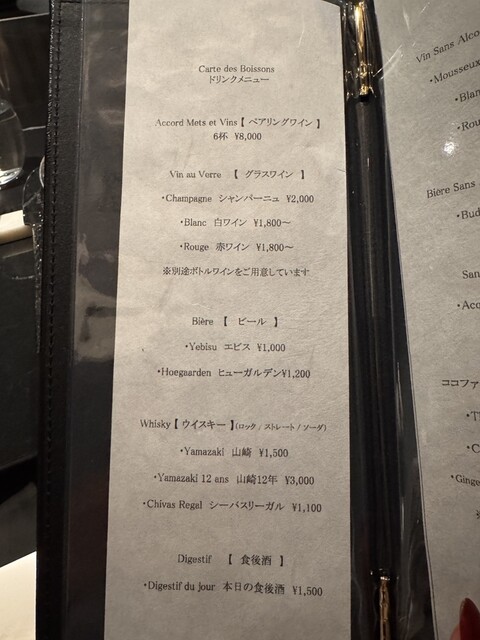 Carte des Boissons
ドリンクメニュー
Accord Mets et Vins【 ペアリングワイン 】
6杯 ¥8,000
Vin au Verre 【 グラスワイン 】
・Champagne シャンパーニュ ¥2,000
・Blanc 白ワイン ¥1,800～
・Rouge 赤ワイン ¥1,800～
※別途ボトルワインをご用意しています
Bière 【 ビール 】
・Yebisu エビス ¥1,000
・Hoegaarden ヒューガルデン¥1,200
Whisky【 ウイスキー 】(ロック / ストレート / ソーダ)
・Yamazaki 山崎 ¥1,500
・Yamazaki 12 ans 山崎12年 ¥3,000
・Chivas Regal シーバスリーガル ¥1,100
Digestif 【 食後酒 】
・Digestif du jour 本日の食後酒 ¥1,500
Vin Sans Alco
・Mousseux
・Blan
・Rou
Bière Sans
・Bud
San
ココファ